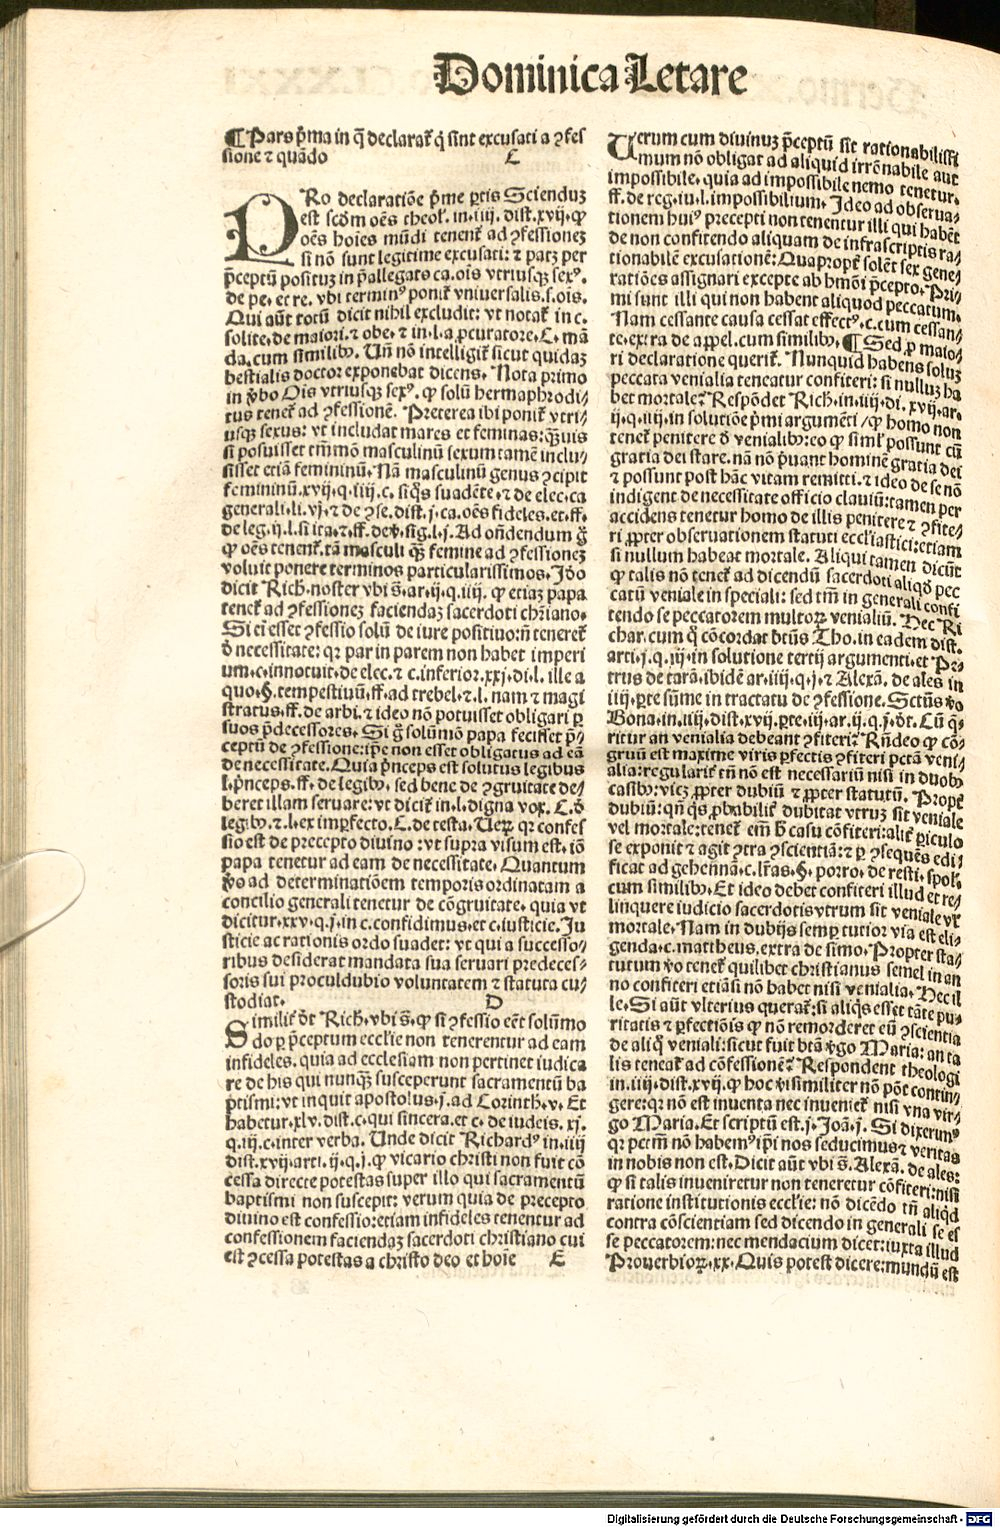 Dominica Letare
¶Pars p̄ma in q̄ declarat̄ q̇ sint excusati a ꝯfes
sione ⁊ quādo C
PRo declaratiōe p̄me ꝑtis Scienduꝫ
est scḋm oēs theol̕. in .iiij. dist. xvij. ꝙ
oēs hoies mūdi tenent̄ ad ꝯfessioneꝫ
si nō sunt legitime excusati: ⁊ patꝫ per
p̄ceptū posituꝫ in p̄allegato ca. oīs vtriusqꝫ sexꝰ.
de pe. et re. vbi terminꝰ ponit̄ vniuersalis. s. oīs.
Qui aūt totū dicit nihil excludit: vt notat̄ in c.
solite. de maiori. ⁊ obe. ⁊ in .l. a ꝓcuratore. C. mā
da. cum similibꝰ. Vn̄ nō intelligit̄ sicut quidaꝫ
bestialis doctor exponebat dicens. Nota primo
in ꝟbo Oīs vtriusqꝫ sexꝰ. ꝙ solū hermaphrodi⸗
tus tenet̄ ad ꝯfessionē. Preterea ibi ponit̄ vtri⸗
usqꝫ sexus: vt includat mares et feminas: q̄uis
si posuisset tm̄mō masculinū sexum tamē inclu⸗
sisset etiā femininū. Nā masculinū genus ꝯcipit
femininū. xvij. q. iiij. c. si q̇s suadēte. ⁊ de elec. ca
generali. li. vj. ⁊ de ꝯse. dist. j. ca. oēs fideles. et. ff.
de leg. ij. l. si ita. ⁊. ff. de ꝟ. sig. l. j. Ad on̄dendum g̊
ꝙ oēs tenent̄. tā masculi q̄ femine ad ꝯfessioneꝫ
voluit ponere terminos particularissimos. Ido
dicit Rich. noster vbi s̄. ar. ij. q. iiij. ꝙ etiaꝫ papa
tenet̄ ad ꝯfessioneꝫ faciendaꝫ sacerdoti chr̄iano.
Si eī esset ꝯfessio solū de iure positiuo: n̄ teneret̄
ḋ necessitate: qꝛ par in parem non habet imperi
um. c. innotuit. de elec. ⁊ c. inferior. xxj. di. l. ille a
quo. §. tempestiuū. ff. ad trebel. ⁊. l. nam ⁊ magi
stratus. ff. de arbi. ⁊ ideo nō potuisset obligari ꝑ
suos p̄decessores. Si g̊ solūmō papa fecisset p̄⸗
ceptū de ꝯfessione: ip̄e non esset obligatus ad eā
de necessitate. Quia p̄nceps est solutus legibus
l. p̄nceps. ff. de legibꝰ. sed bene de ꝯgruitate de⸗
beret illam seruare: vt dicit̄ in .l. digna vox. C. ḋ
legibꝰ. ⁊. l. ex imꝑfecto. C. de testa. Veꝝ qꝛ confes
sio est de precepto diuino: vt supra visum est. iō
papa tenetur ad eam de necessitate. Quantum
ꝟo ad determinatiōem temporis ordinatam a
concilio generali tenetur de cōgruitate. quia vt
dicitur. xxv. q. j. in c. confidimus. et c. iusticie. Ju
sticie ac rationis ordo suadet: vt qui a successo⸗
ribus desiderat mandata sua seruari predeces⸗
soris sui proculdubio voluntatem ⁊ statuta cu⸗
stodiat. D
Similit̄ ḋt Rich. vbi s̄. ꝙ si ꝯfessio eēt solūmo
do ꝑ p̄ceptum eccl̄ie non tenerentur ad eam
infideles. quia ad ecclesiam non pertinet iudica
re de his qui nunq̄ susceperunt sacramentū ba
ptismi: vt inquit apostolus. j. ad Corinth. v. Et
habetur. xlv. dist. c. qui sincera. et c. de iudeis. xj.
q. iij. c. inter verba. Unde dicit Richardꝰ in. iiij
dist. xvij. arti. ij. q. j. ꝙ vicario christi non fuit cō
cessa directe potestas super illo qui sacramentū
baptismi non suscepit: verum quia de precepto
diuino est confessio: etiam infideles tenentur ad
confessionem faciendaꝫ sacerdoti christiano cui
est ꝯcessa potestas a christo deo et hoīe E
Verum cum diuinuꝫ p̄ceptū sit rationabilissi
mum nō obligat ad aliquid irrōnabile aut
impossibile. quia ad impossibile nemo tenetur.
ff. de reg. iu. l. impossibilium. Ideo ad obserua⸗
tionem huiꝰ precepti non tenentur illi qui habēt
de non confitendo aliquam de infrascriptis ra⸗
tionabilē excusationē: Quapropt̄ solēt sex gene⸗
ratiōes assignari excepte ab hmōi p̄cepto. Pri⸗
mi sunt illi qui non habent aliquod peccatum.
Nam cessante causa cessat effectꝰ. c. cum cessan⸗
te. extra de appel. cum similibꝰ. ¶Sed ꝓ maio⸗
ri declaratione querit̄. Nunquid habens soluꝫ
peccata venialia teneatur confiteri: si nulluꝫ ha
bet mortale? Respōdet Rich. in. iiij. di. xvij. ar.
ij. q. iiij. in solutiōe p̄mi argumēti / ꝙ homo non
tenet̄ penitere ḋ venialibꝰ: eo ꝙ siml̕ possunt cū
gratia dei stare. nā nō p̄uant hominē gratia dei
⁊ possunt post hāc vitam remitti. ⁊ ideo de se nō
indigent de necessitate officio clauiū: tamen per
accidens tenetur homo de illis penitere ⁊ ꝯfite⸗
ri ꝓpter obseruationem statuti eccl̄iastici: etiam
si nullum habeat mortale. Aliqui tamen dicūt
ꝙ talis nō tenet̄ ad dicendū sacerdoti aliqḋ pec
catū veniale in speciali: sed tm̄ in generali confi
tendo se peccatorem multoꝝ venialiū. Hec Ri
char. cum q̊ cōcordat btūs Tho. in eadem dist.
arti. j. q. iij. in solutione tertij argumenti. et Pe⸗
trus de tarā. ibidē ar. iiij. q. j. ⁊ Alexā. de ales in
iiij. ꝑte sūme in tractatu de ꝯfessione. Sctūs ꝟo
Bona. in. iiij. dist. xvij. ꝑte. iij. ar. ij. q. j. ḋt. Cū q̄⸗
ritur an venialia debeant ꝯfiteri? Rn̄deo ꝙ cō⸗
gruū est maxime viris ꝑfectis ꝯfiteri pctā veni⸗
alia: regularit̄ tn̄ nō est necessariū nisi in duobꝰ
casibꝰ: vicꝫ ꝓpter dubiū ⁊ ꝓpter statutū. Propt̄
dubiū: qn̄ q̇s ꝓbabilit̄ dubitat vtruꝫ sit veniale
vel mortale: tenet̄ em̄ h̄ casu cōfiteri: alit̄ ꝑiculo
se exponit ⁊ agit ꝯtra ꝯscientiā: ⁊ ꝑ ꝯsequēs edi⸗
ficat ad gehennā. c. lr̄as. §. porro. de resti. spol̕.
cum similibꝰ. Et ideo debet confiteri illud et re⸗
linquere iudicio sacerdotis vtrum sit veniale vl̕
mortale. Nam in dubijs semꝑ tutior via est eli⸗
genda. c. mattheus. extra de simo. Propter sta⸗
tutum ꝟo tenet̄ quilibet christianus semel in an
no confiteri etiāsi nō habet nisi venialia. Hec il
le. Si aūt vlterius querat̄: si aliq̇s esset tāte pu⸗
ritatis ⁊ ꝑfectiōis ꝙ nō remorderet eū ꝯscientia
de aliq̊ veniali: sicut fuit btā ꝟgo Maria: an ta
lis teneat̄ ad cōfessionē? Respondent theologi
in. iiij. dist. xvij. ꝙ hoc ꝟisimiliter nō pōt contin⸗
gere: qꝛ nō est inuenta nec inueniet̄ nisi vna vir⸗
go Maria. Et scriptū est. j. Joā. j. Si dixerimꝰ
qꝛ pctm̄ nō habemꝰ ip̄i nos seducimus ⁊ veritas
in nobis non est. Dicit aūt vbi s̄. Alexā. de ales:
ꝙ si talis inueniretur non teneretur cōfiteri: nisi
ratione institutionis eccl̄ie: nō dicēdo tn̄ aliqd
contra cōscientiam sed dicendo in generali se es
se peccatorem: nec mendacium dicet: iuxta illud
Prouerbioꝝ. xx. Quis potest dicere: mundū est
Digitalisierung gefördert durch die Deutsche Forschungsgemeinschaft - DFG